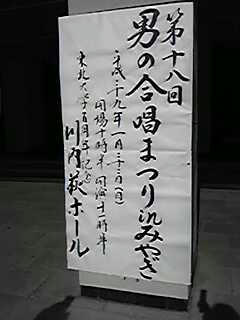 第十八回
男の合唱まつりinみやぎ
平成二十九年一月二十二日(日)
開場十時半 開演十一時半
東北大学百周年記念
川内萩ホール